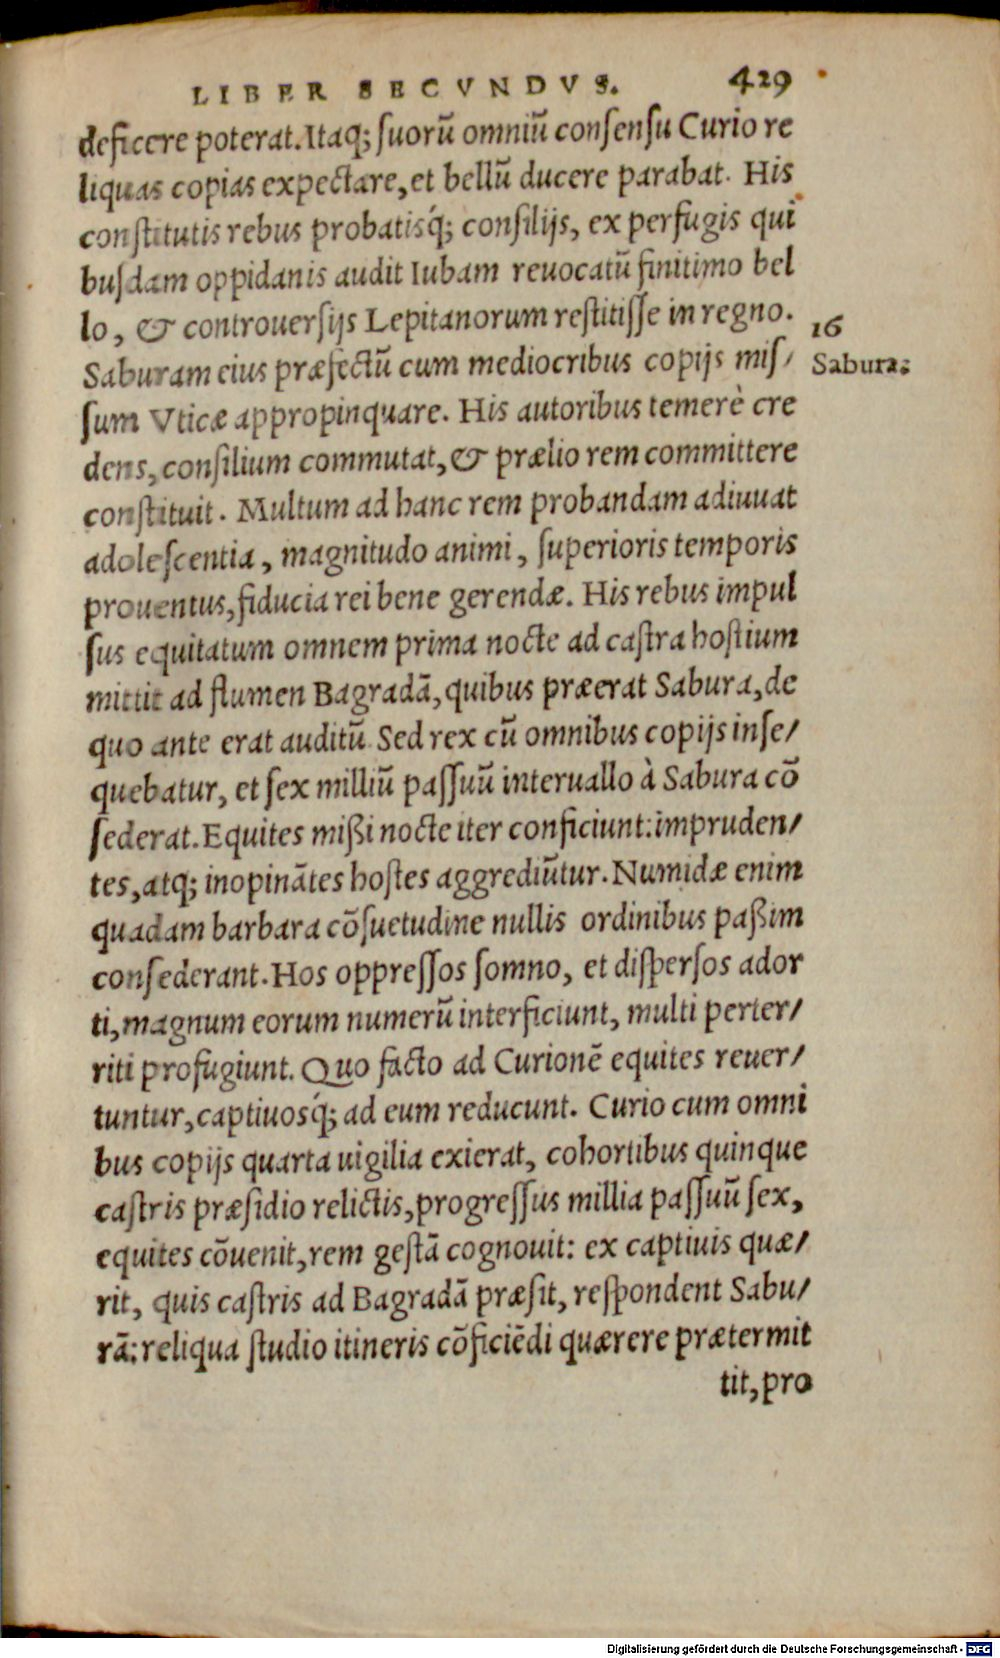 LIBER SECVNDVS. 429
deficere poterat. Itaq; suorū omniū consensu Curio re
liquas copias expectare, et bellū ducere parabat. His
constitutis rebus probatisq́; consilijs, ex perfugis qui
busdam oppidanis audit Iubam reuocatū finitimo bel
lo, & controuersijs Lepitanorum restitisse in regno.
16
Saburam eius præfectū cum mediocribus copijs mis/
Sabura.
sum Vticæ appropinquare. His autoribus temerè cre
dens, consilium commutat, & prælio rem committere
constituit. Multum ad hanc rem probandam adiuuat
adolescentia, magnitudo animi, superioris temporis
prouentus, fiducia rei bene gerendæ. His rebus impul
sus equitatum omnem prima nocte ad castra hostium
mittit ad flumen Bagradā, quibus præerat Sabura, de
quo ante erat auditū. Sed rex cū omnibus copijs inse/
quebatur, et sex milliū passuū interuallo à Sabura cō
sederat. Equites mißi nocte iter conficiunt: impruden/
tes, atq; inopinātes hostes aggrediūtur. Numidæ enim
quadam barbara cōsuetudine nullis ordinibus paßim
consederant. Hos oppressos somno, et dispersos ador
ti, magnum eorum numerū interficiunt, multi perter/
riti profugiunt. Quo facto ad Curionē equites reuer/
tuntur, captiuosq́; ad eum reducunt. Curio cum omni
bus copijs quarta uigilia exierat, cohortibus quinque
castris præsidio relictis, progressus millia passuū sex,
equites cōuenit, rem gestā cognouit: ex captiuis quæ/
rit, quis castris ad Bagradā præsit, respondent Sabu/
rā: reliqua studio itineris cōficiēdi quærere prætermit
tit, pro
Digitalisierung gefördert durch die Deutsche Forschungsgemeinschaft - DFG